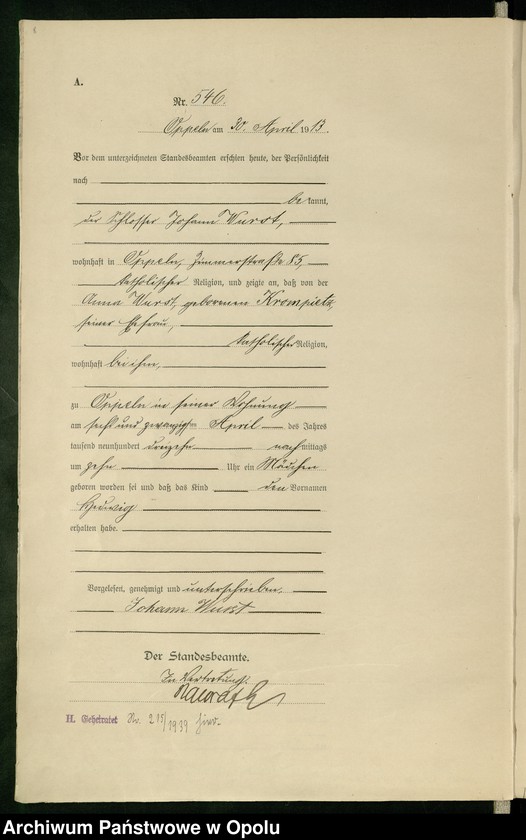 A.
Nr. 546.
Oppeln am 30. April 1913.
Vor dem unterzeichneten Standesbeamten erschien heute, der Persönlichkeit
nach
bekannt,
der Schlosser Johann Wurst,
wohnhaft in Oppeln, Zimmerstraße 85,
katholischer Religion, und zeigte an, daß von der
Anna Wurst, geborenen Krompietz,
seiner Ehefrau,
katholischer Religion,
wohnhaft bei ihm,
zu Oppeln in seiner Wohnung
am sechsundzwanzigsten April des Jahres
tausend neunhundert dreizehn nachmittags
um zehn Uhr ein Mädchen
geboren worden sei und daß das Kind den Vornamen
Hedwig
erhalten habe.
Vorgelesen, genehmigt und unterschrieben.
Johann Wurst
Der Standesbeamte.
In Vertretung.
H. Geheiratet Nr. 215/1939
Archiwum Państwowe w Opolu